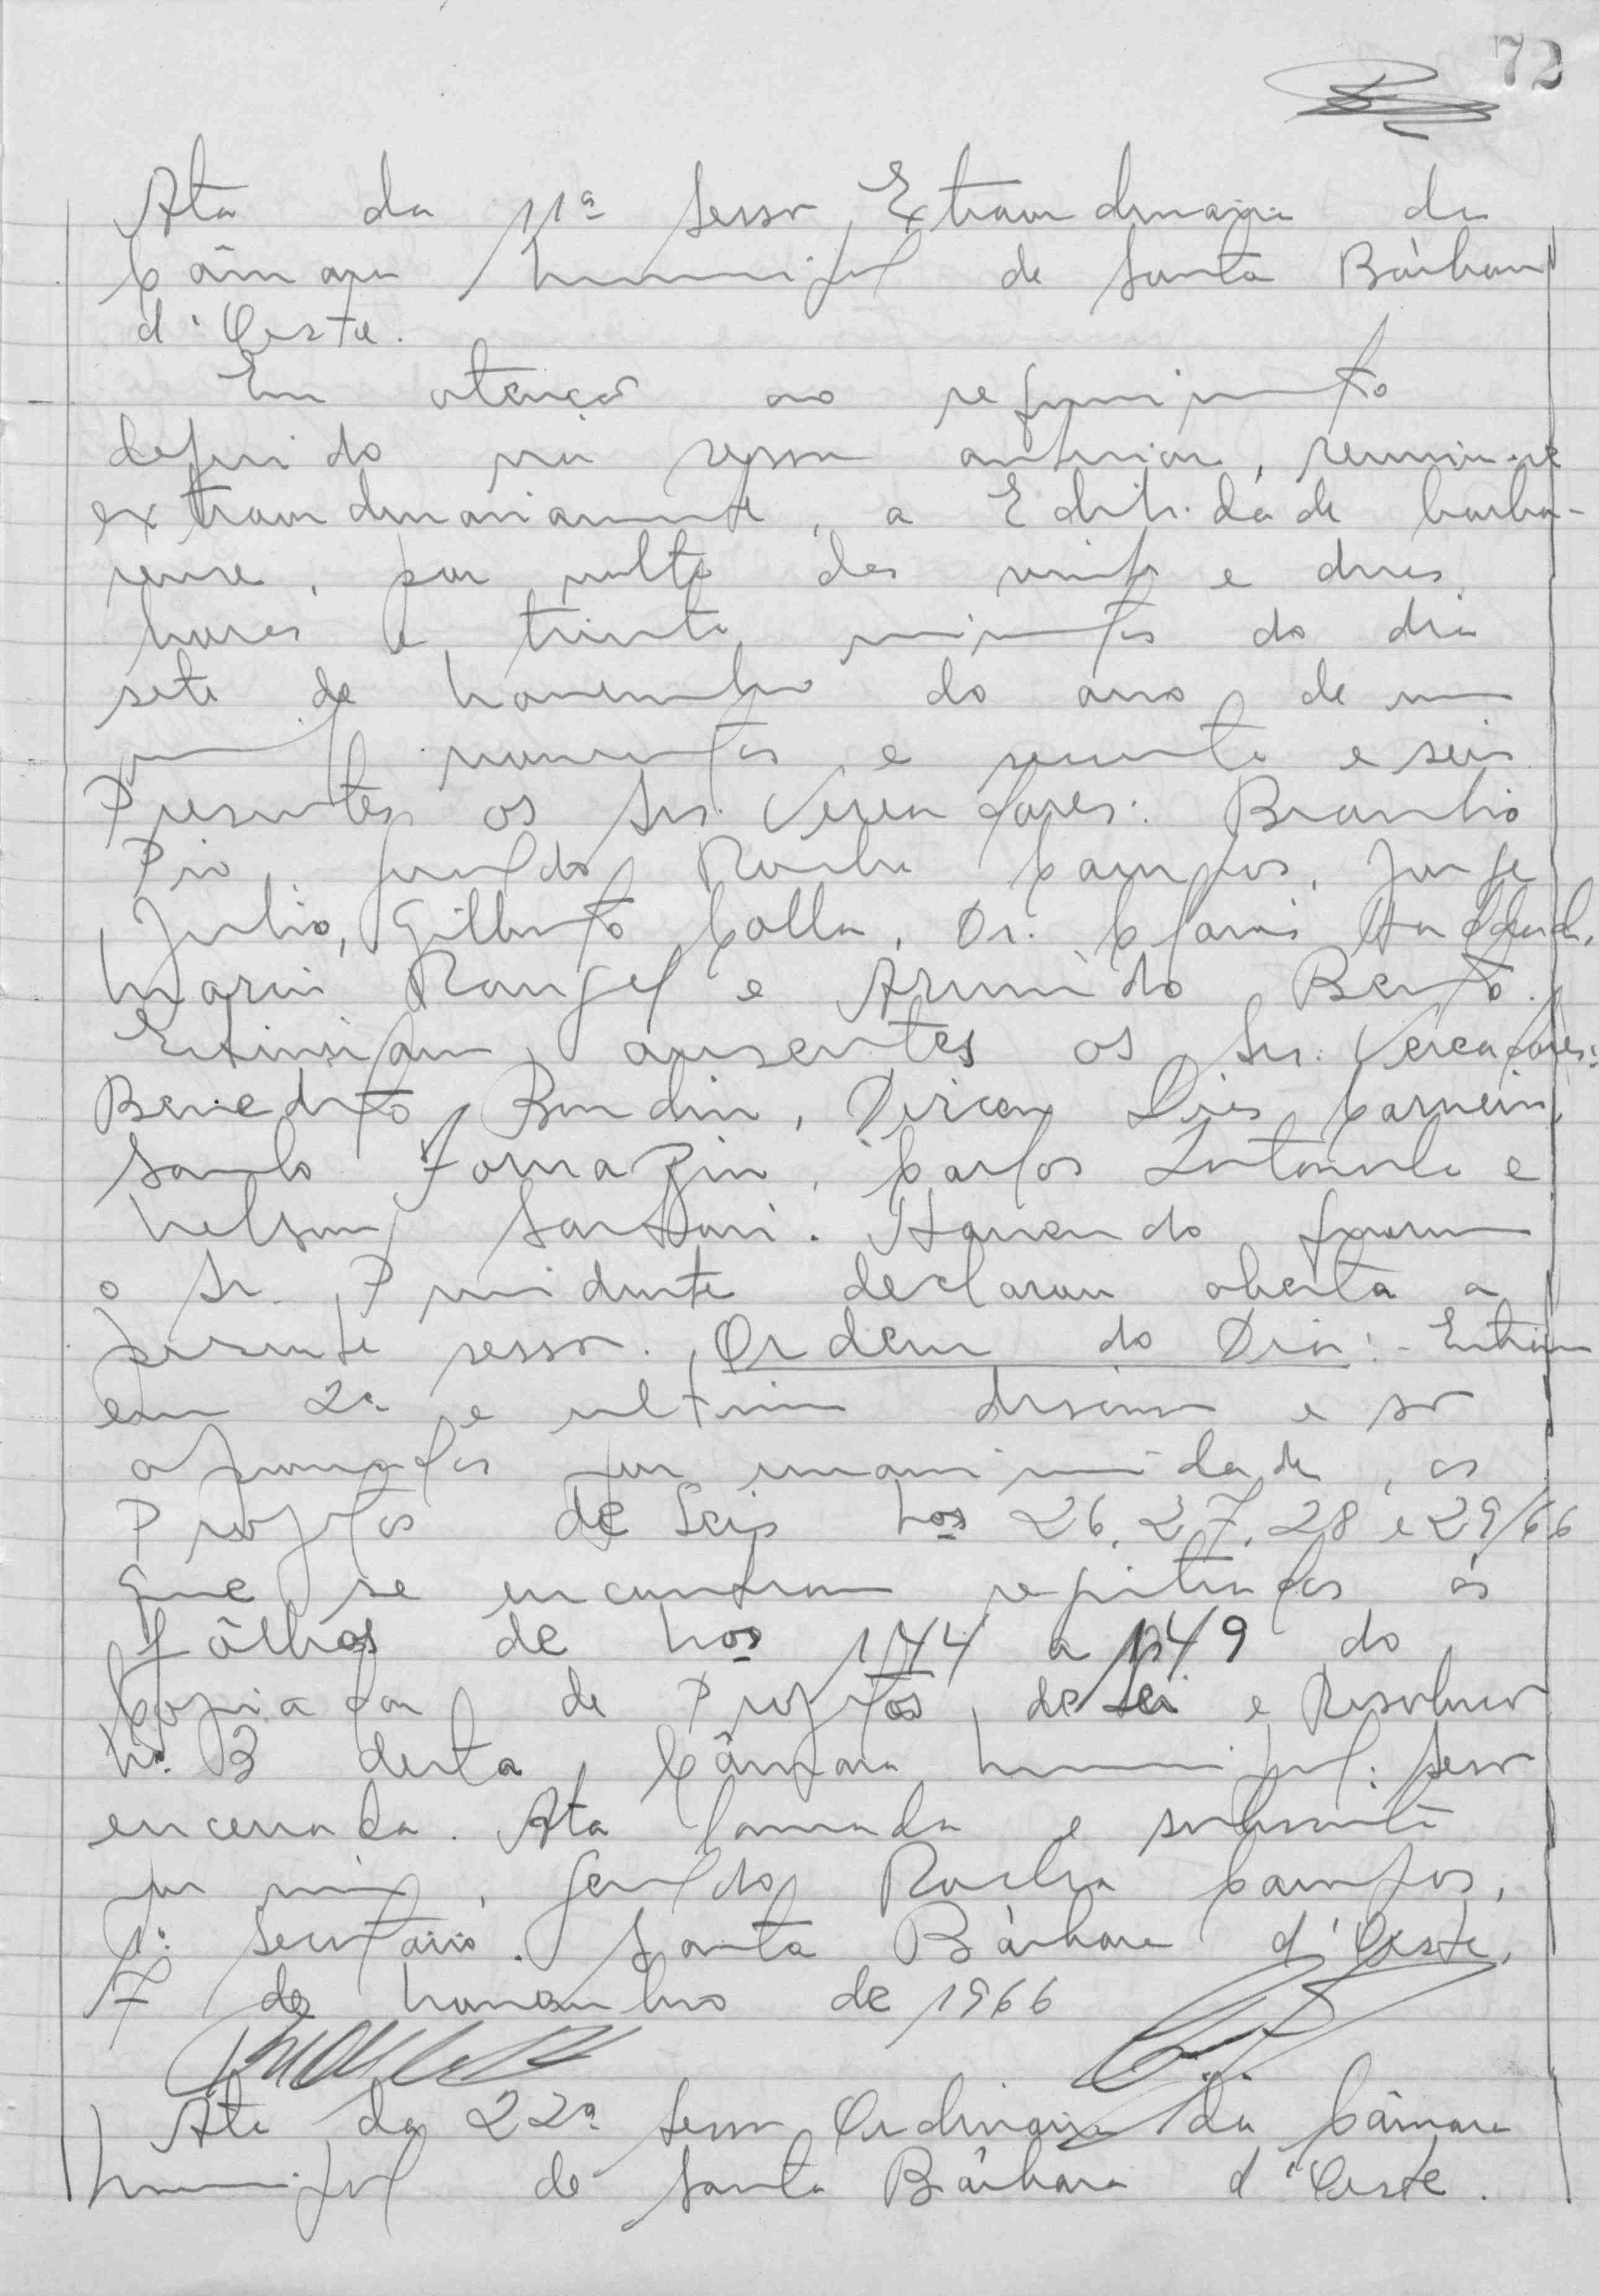 72
Ata da 11ª Sessão Extraordinária da
Câmara Municipal de Santa Bárbara
d'Oeste.
Em atenção ao requerimento
deferido na sessão anterior, reuniu-se
extraordinariamente, a Edilidade barba-
rense, por volta das vinte e duas
horas e trinta minutos do dia
sete de novembro do ano de um
mil novecentos e sessenta e seis.
Presentes os Srs. Vereadores: Braulio
Pio, Geraldo Rocha Campos, Jorge
Julio, Gilberto Colla, Dr. Clovis Haddad,
Mario Rangel e Arlindo Bento.
Estiveram ausentes os Srs. Vereadores:
Benedito Bondin, Dirceu Dias Carneiro,
Santo Fornazin, Carlos e
Nelson Sartori. Havendo
o Sr. Presidente declarou aberta a
presente sessão. Ordem do Dia:- Entram
em 2ª e ultima discussão e são
aprovados por unanimidade, os
Projetos de Leis Nos 26, 27, 28 e 29/66
que se encontram registrados às
fôlhas de Nos 144 a 149 do
Copiador de Projetos de Lei e Resolução
Nº. 3 desta Câmara Municipal. Sessão
encerrada. Ata lavrada e subscrita
por mim, Geraldo Rocha Campos,
1º. Secretário. Santa Bárbara d'Oeste,
7 de novembro de 1966
Ata da 22ª Sessão Ordinária da Câmara
Municipal de Santa Bárbara d'Oeste.